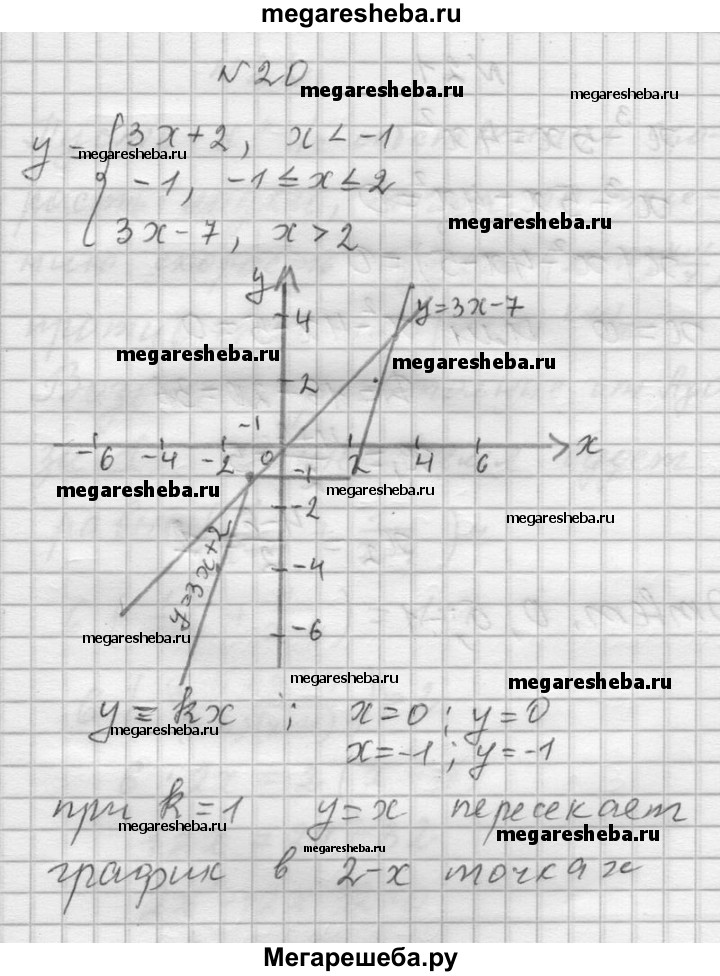 megaresheba.ru
№ 20
megaresheba.ru
megaresheba.ru
y = { 3x+2, x < -1
megaresheba.ru
-1, -1 ≤ x ≤ 2
3x-7, x > 2
megaresheba.ru
y
4
y=3x-7
megaresheba.ru
megaresheba.ru
2
-1
-6 -4 -2 0 2 4 6 x
-1
megaresheba.ru
megaresheba.ru
-2
megaresheba.ru
y=3x+2
-4
megaresheba.ru
-6
megaresheba.ru
megaresheba.ru
y = kx ; x=0; y=0
megaresheba.ru
x=-1; y=-1
при k=1 y=x пересекает
megaresheba.ru
megaresheba.ru
megaresheba.ru
график в 2-х точках
Мегарешеба.ру